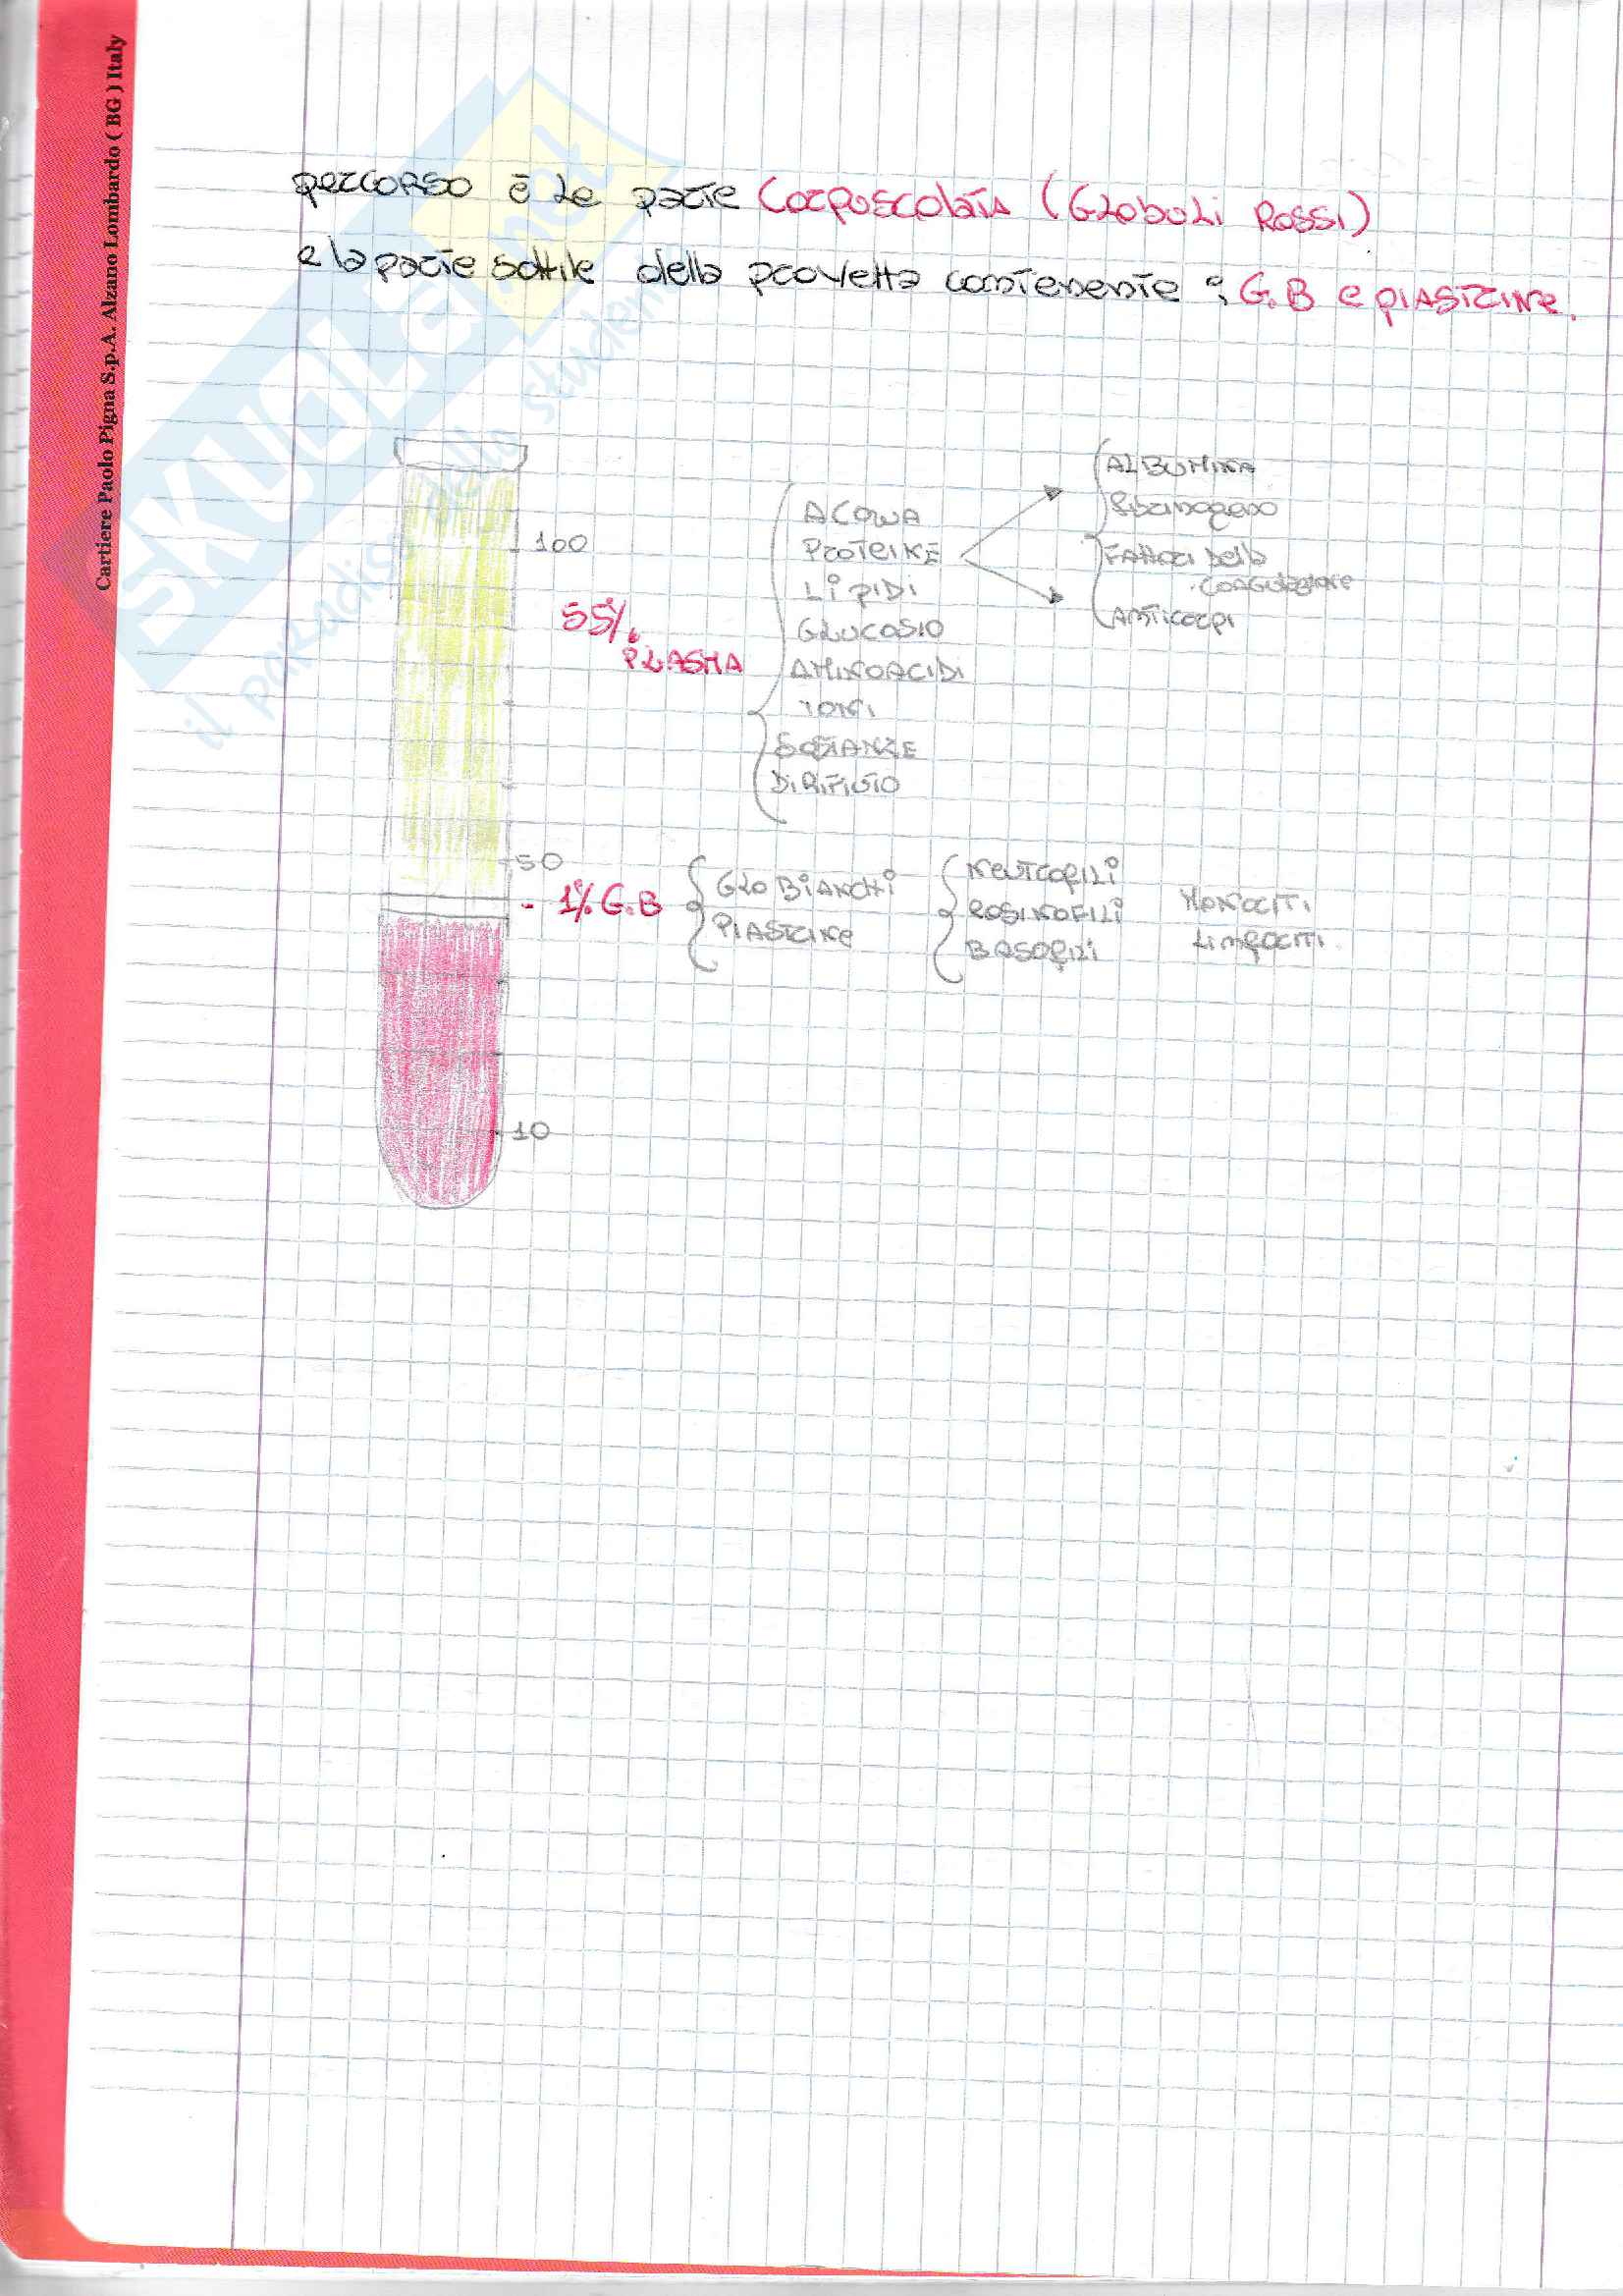 Cartiere Paolo Pigna S.p.A. Alzano Lombardo ( BG ) Italy
SKUOLA.net
il paradiso dello studente
percorso è le parte Corpuscolata (Globuli Rossi)
e la parte sottile della provetta contenente : G.B e piastrine.
100
55% PLASMA
ACQUA
PROTEINE
LIPIDI
GLUCOSIO
AMINOACIDI
IONI
SOSTANZE
DI RIFIUTO
ALBUMINA
Fibrinogeno
FATTORI della
COAGULAZIONE
ANTICORPI
50
- 1% G.B
GLO BIANCHI
PIASTRINE
NEUTROFILI
EOSINOFILI
BASOFILI
MONOCITI
LINFOCITI
10